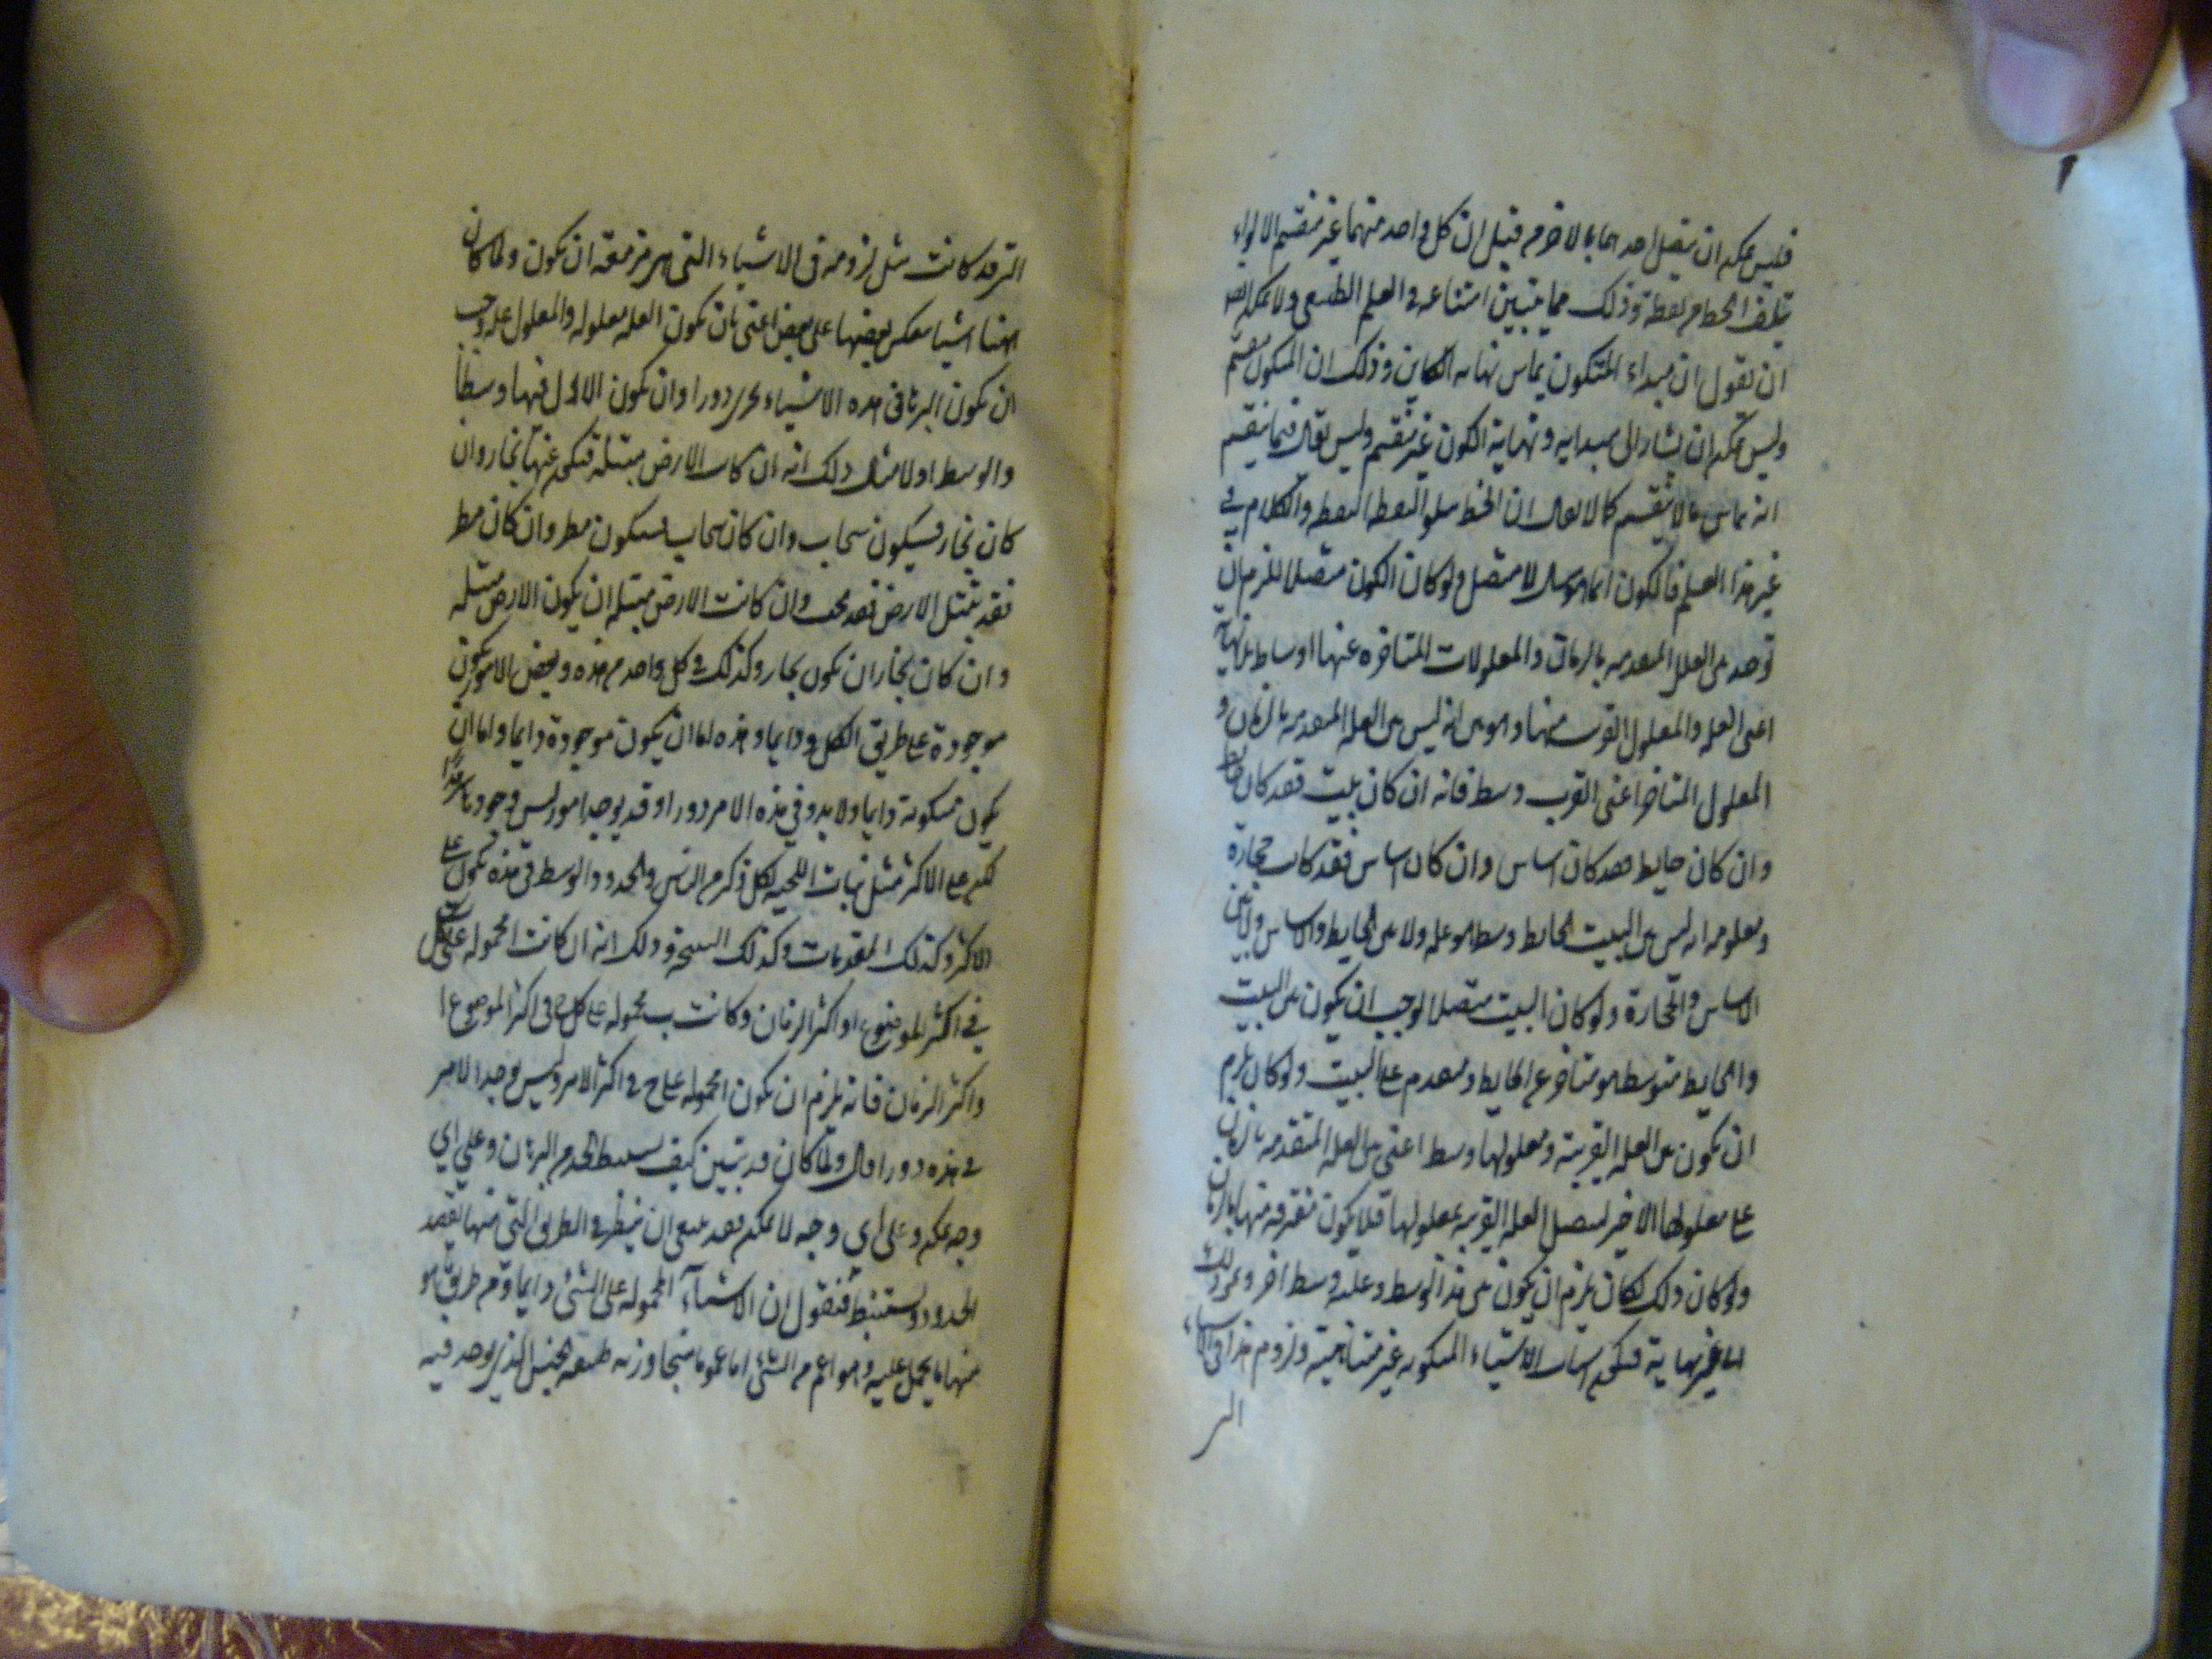 فليس يمكن ان يتصل احدهما بالاخر من قبل ان كل واحد منهما غير منقسم الا لو
يتلف الخط من نقطة وذلك مما يتبين امتناعه في العلم الطبيعي ولا يمكن
ان نقول ان مبداء المتكون يماس نهايه الكاين وذلك ان المتكون منقسم
وليس يمكن ان يشار الى مبدايه ونهاية الكون غير منقسم وليس يقال فيما ينقسم
انه يماس ما لا ينقسم كما لا يقال ان الخط يتلو النقطه النقطه والكلام في
غير هذا العلم فالكون انما هو تال لا متصل ولو كان الكون متصلا للزم ان
توجد بين العلل المتقدمه بالزمان والمعلولات المتاخره عنها اوساط بلا نهاية
اعنى العله والمعلول القريب منها وهو بين انه ليس بين العله المتقدمه بالزمان و
المعلول المتاخر اعنى القريب وسط فانه ان كان بيت فقد كان حايط
وان كان حايط فقد كان اساس وان كان اساس فقد كانت حجارة
ومعلوم انه ليس بين البيت والحايط وسط هو عله ولا بين الحايط والاساس ولا بين
الاساس والحجارة ولو كان البيت متصلا لوجب ان يكون بين البيت
والحايط متوسط هو متاخر عن الحايط ومتقدم على البيت ولو كان يلزم
ان يكون بين العله القريبة ومعلولها وسط اعنى بين العله المتقدمه بالزمان
على معلولها الاخير لتتصل العله القريبه بمعلولها فلا يكون مفترقه منها بالزمان
ولو كان ذلك لكان يلزم ان يكون بين هذا الوسط وعلته وسط اخر ويمر ذلك
الى غير نهاية فتكون اسباب الاشياء المتكونه غير متناهية ولزوم هذا في الاشياء
التر
التر قد كانت مثل لزومه فى الاشياء التى هى مزمعة ان تكون ولما كان
ههنا اشيا ينعكس بعضها على بعض اعنى بان تكون العله معلوله والمعلول عله وجب
ان يكون البرهان فى هذه الاشياء يجرى دورا وان يكون الاول فيها وسطا
والوسط اولا مثال ذلك انه ان كانت الارض مبتلة فتكون عنها بخار وان
كان بخار فسيكون سحاب وان كان سحاب فسيكون مطر وان كان مطر
فقد تبتل الارض فقد يجب وان كانت الارض مبتله ان يكون الارض مبتله
وان كان بخار ان يكون بخار وكذلك في كل واحد من هذه وبعض الامور يكون
موجودة على طريق الكل ودايما وهذه اما ان يكون موجودة دايما واما ان
يكون متكونة دايما ولا بد وفي هذه الامر دورا وقد يوجد امور ليس وجودها
لكن على الاكثر مثل نبات اللحيه لكل ذكر من الناس والحدود والوسط في هذه يكون على
الاكثر وكذلك المقدمات وكذلك النتيجة وذلك انه ان كانت المحموله على كل
في اكثر الموضوع او اكثر الزمان وكانت ب محموله على كل ج فى اكثر الموضوع ا
و اكثر الزمان فانه يلزم ان يكون ا محموله على ج في اكثر الامر وليس يوجد الامر
في هذه دورا قال ولما كان قد تبين كيف يستنبط الحد من البرهان وعلى اي
وجه يمكن وعلى اي وجه لا يمكن فقد ينبغى ان ينظر في الطريق التي منها تقتصد
الحدود وتستنبط فنقول ان الاشياء المحموله على الشئ دايما ومن طريق ما هو
منها ما يحمل عليه وهو اعم من الشئ اما عموما متجاوزه طبيعه الجنس الذى يوجد فيه